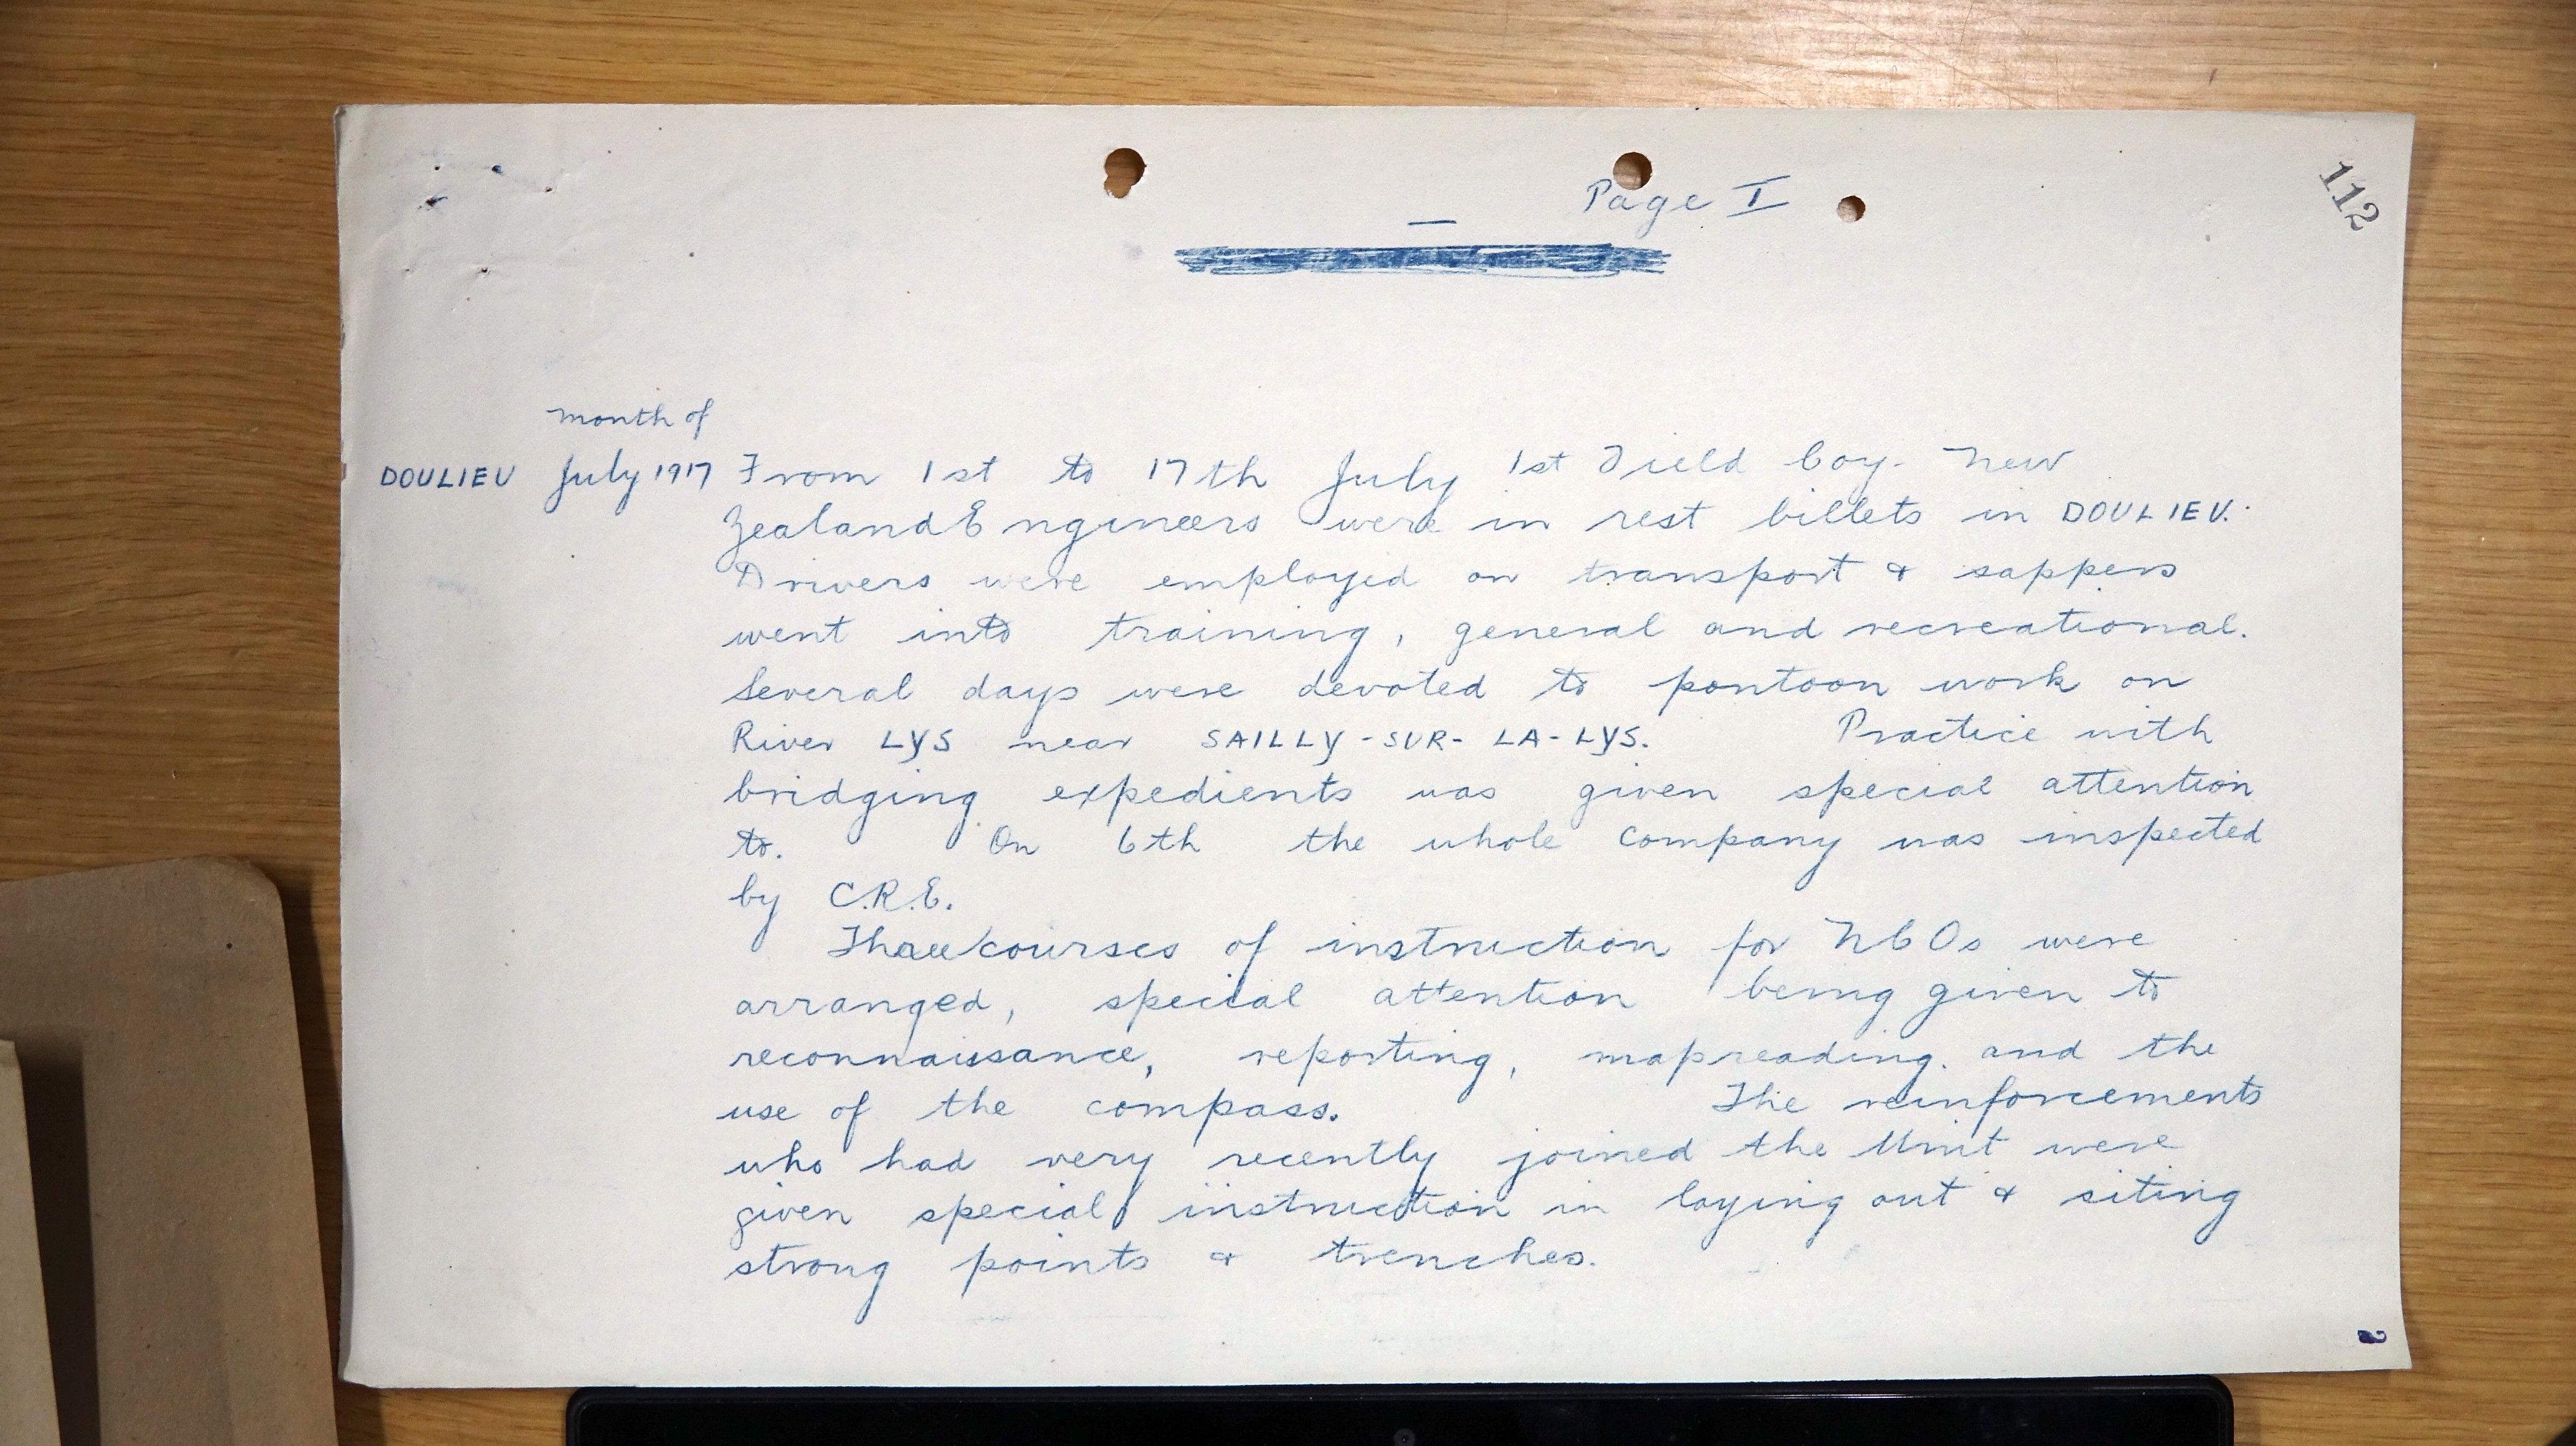 Page I
112
month of
DOULIEU July 1917 From 1st to 17th July 1st Field Coy. New
Zealand Engineers were in rest billets in DOULIEU.
Drivers were employed on transport & sappers
went into training, general and recreational.
Several days were devoted to pontoon work on
River LYS near SAILLY-SUR-LA-LYS. Practice with
bridging expedients was given special attention
to. On 6th the whole Company was inspected
by C.R.E.
Three courses of instruction for NCOs were
arranged, special attention being given to
reconnaissance, reporting, mapreading. and the
use of the compass. The reinforcements
who had very recently joined the Unit were
given special instruction in laying out & siting
strong points & trenches.
2